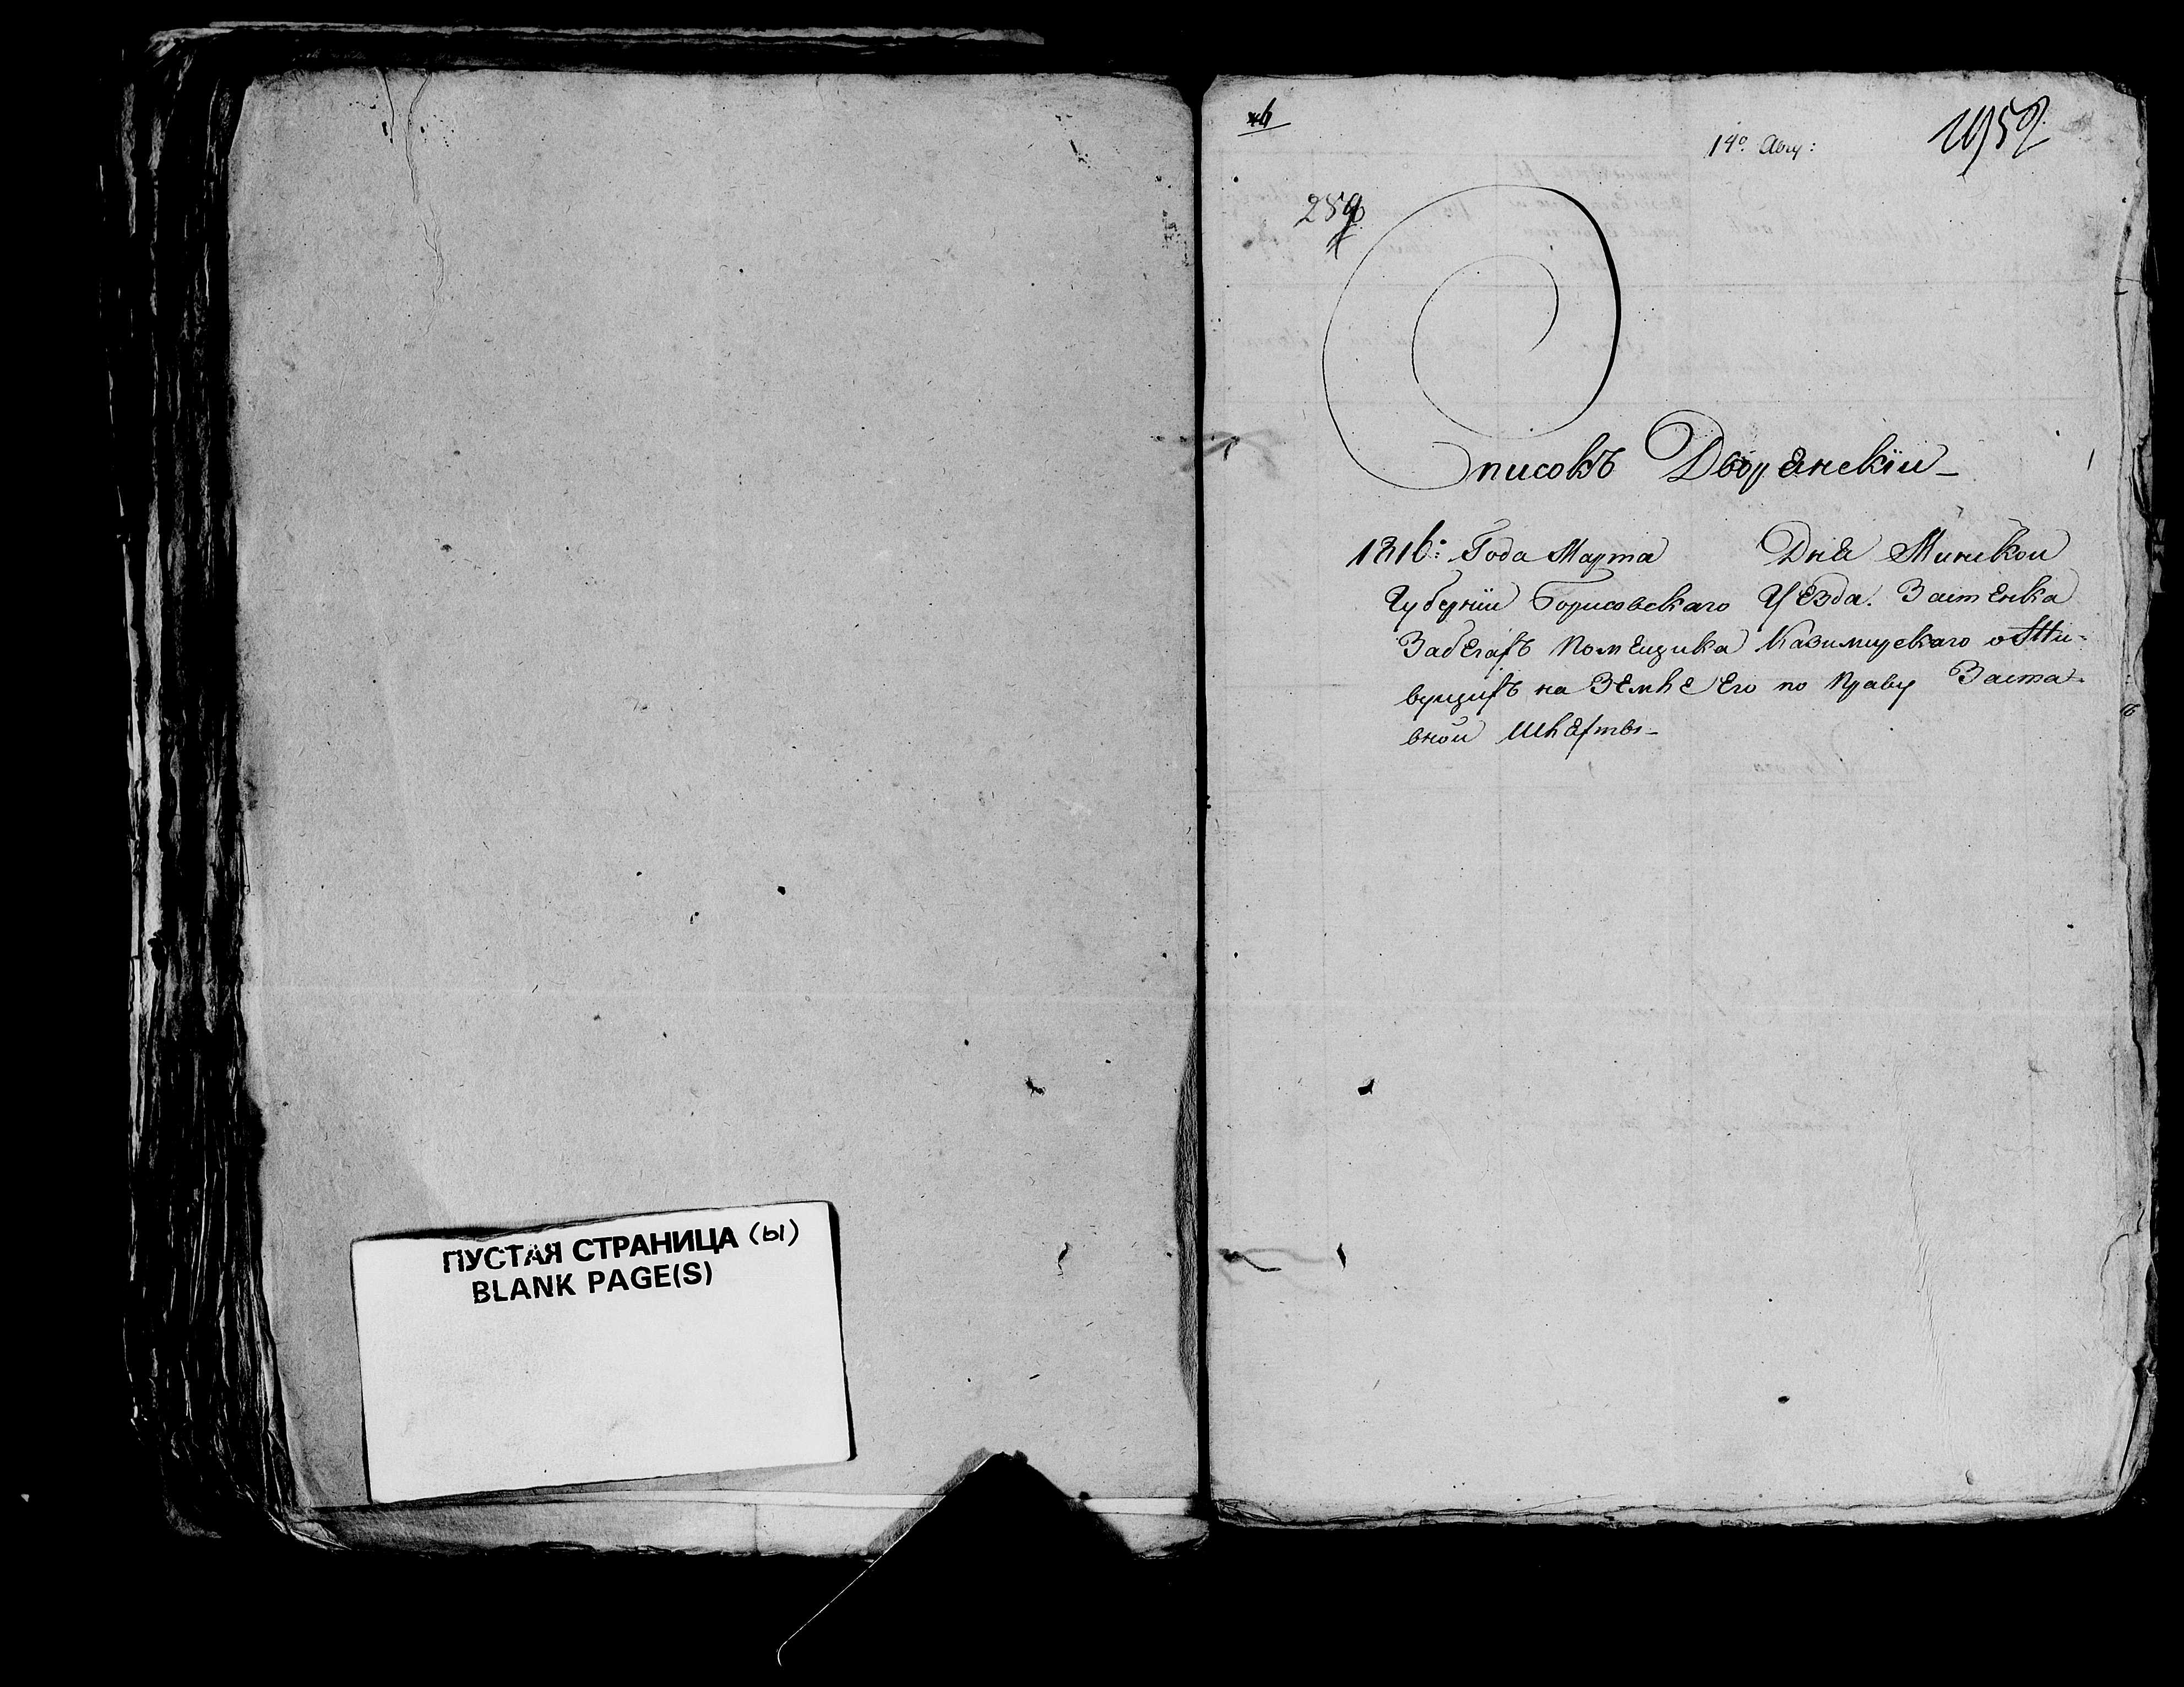 ПУСТАЯ СТРАНИЦА (ы)
BLANK PAGE(S)
14º Авгу:
259
Списокъ Дворянскiи
1816: Года Марта Дня Минскои
Губернiи Борисовскаго Уезда. Застенка
Помещика Казимирскаго о Жи-
вущихъ на Земле Его по Праву Заста-
внои Шляхты